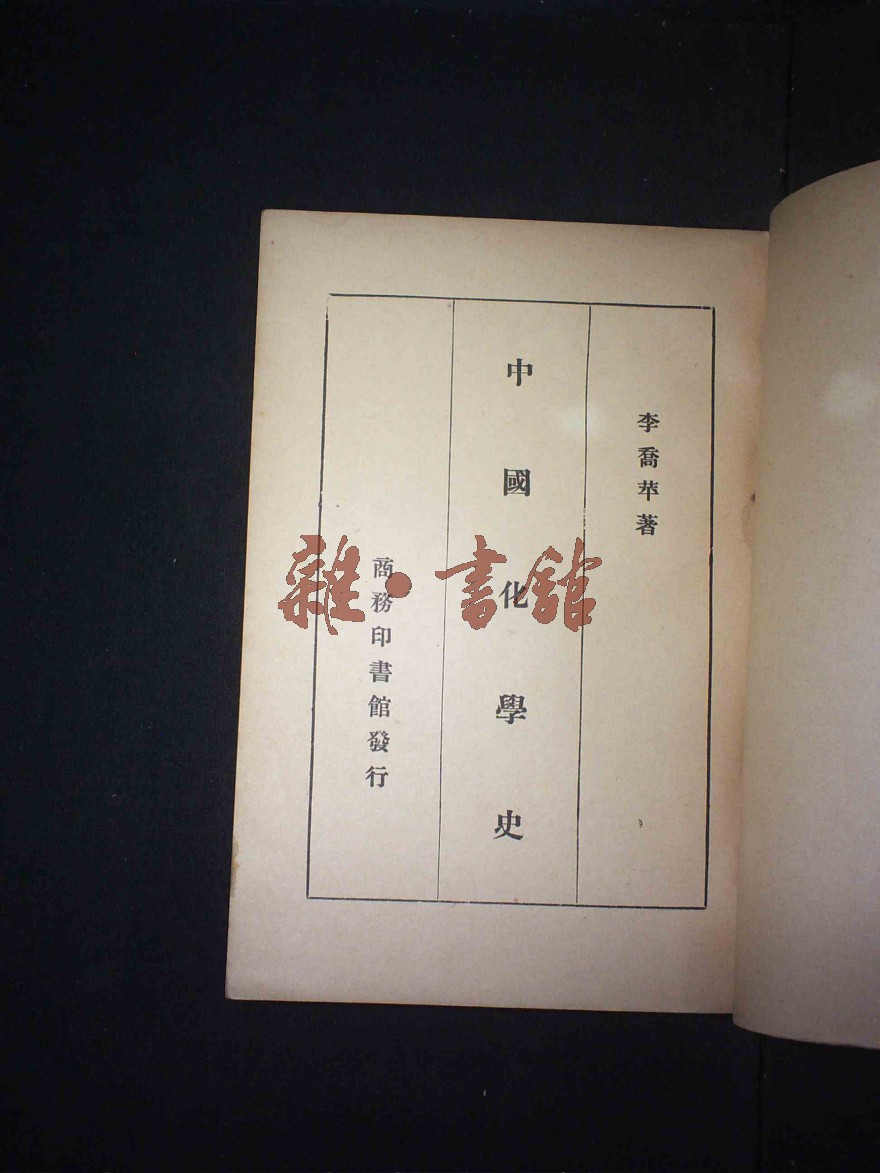 李喬苹著
中國化學史
商務印書館發行
雜·書館